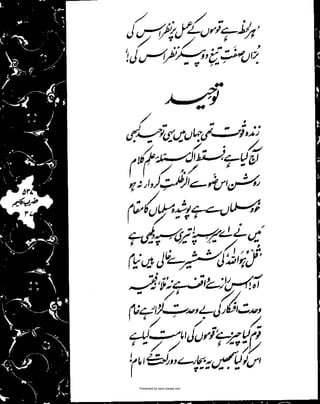 ہر لحظہ ہے قوموں کے عمل پر نظر اس کی
بُرّاں صفتِ تیغِ دو پیکر نظر اس کی!
توحید
زندہ قوت تھی جہاں میں یہی توحید کبھی
آج کیا ہے، فقط اک مسئلۂ علمِ کلام
روشن اس ضو سے اگر ظلمتِ کردار نہ ہو
خود مسلماں سے ہے پوشیدہ مسلماں کا مقام
میں نے اے میرِ سپہ! تیری سپہ دیکھی ہے
قُل ہُوَ اللہ کی شمشیر سے خالی ہیں نیام
آہ! اس راز سے واقف ہے نہ مُلّا، نہ فقیہ
وحدت افکار کی بے وحدتِ کردار ہے خام
قوم کیا چیز ہے، قوموں کی امامت کیا ہے
اس کو کیا سمجھیں یہ بیچارے دو رکعت کے امام!
۵۳۷
ضربِ کلیم
۳۷